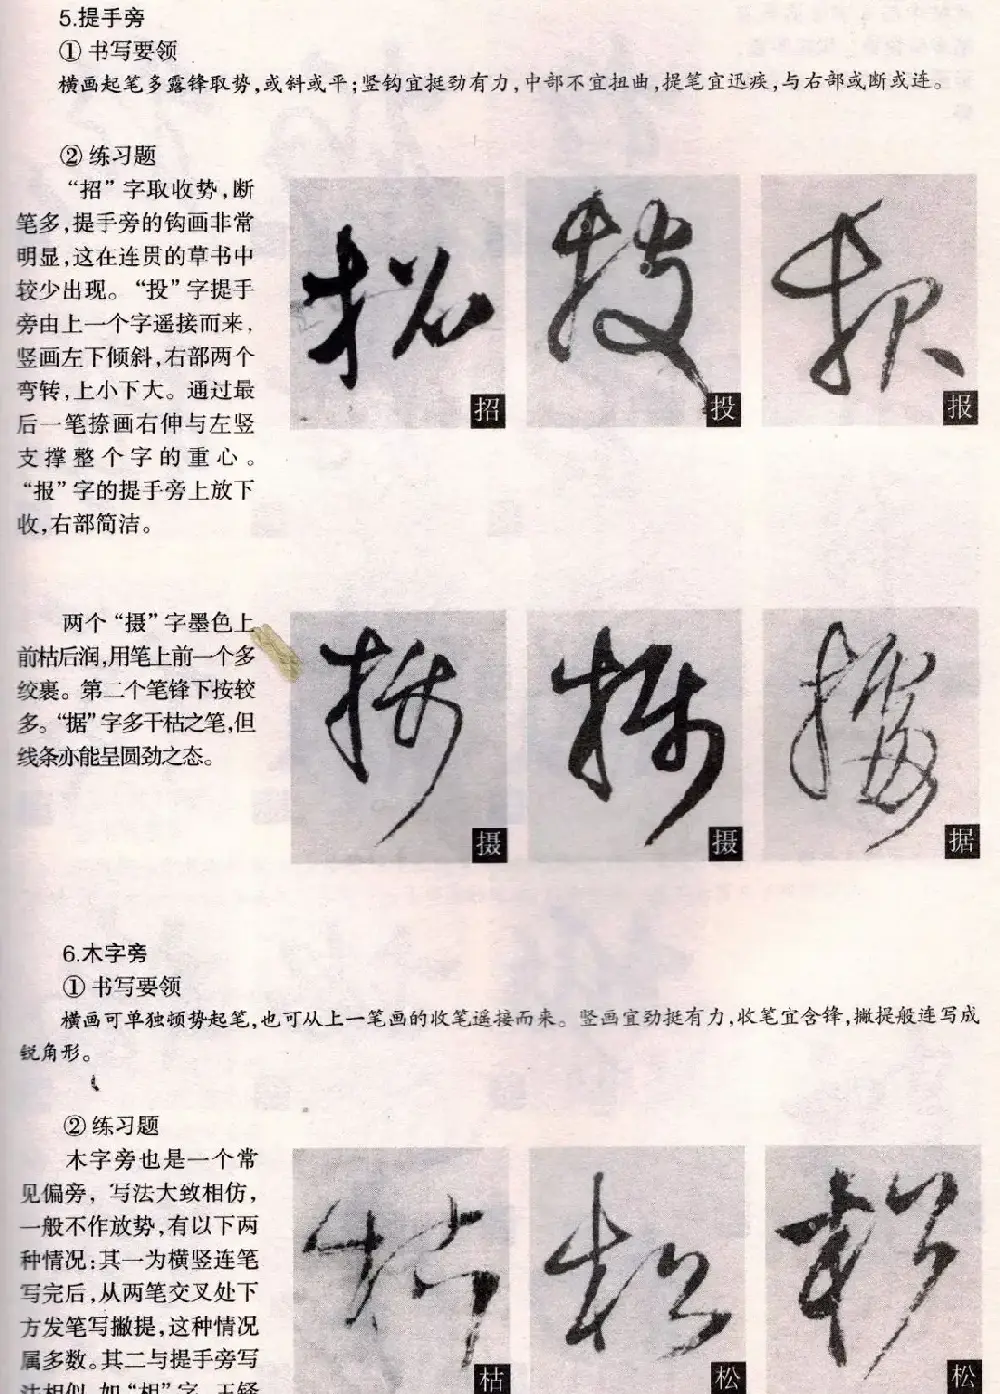 5.提手旁
① 书写要领
横画起笔多露锋取势,或斜或平;竖钩宜挺劲有力,中部不宜扭曲,提笔宜迅疾,与右部或断或连。
② 练习题
“招”字取收势,断
笔多,提手旁的钩画非常
明显,这在连贯的草书中
较少出现。“投”字提手
旁由上一个字遥接而来,
竖画左下倾斜,右部两个
弯转,上小下大。通过最
后一笔捺画右伸与左竖
支撑整个字的重心。
“报”字的提手旁上放下
收,右部简洁。
招
投
报
两个“摄”字墨色上
前枯后润,用笔上前一个多
绞裹。第二个笔锋下按较
多。“据”字多干枯之笔,但
线条亦能呈圆劲之态。
摄
摄
据
6.木字旁
① 书写要领
横画可单独顿势起笔,也可从上一笔画的收笔遥接而来。竖画宜劲挺有力,收笔宜含锋,撇提般连写成
锐角形。
② 练习题
木字旁也是一个常
见偏旁,写法大致相仿,
一般不作放势,有以下两
种情况:其一为横竖连笔
写完后,从两笔交叉处下
方发笔写撇提,这种情况
属多数。其二与提手旁写
法相似,如“相”字,王铎
枯
松
松